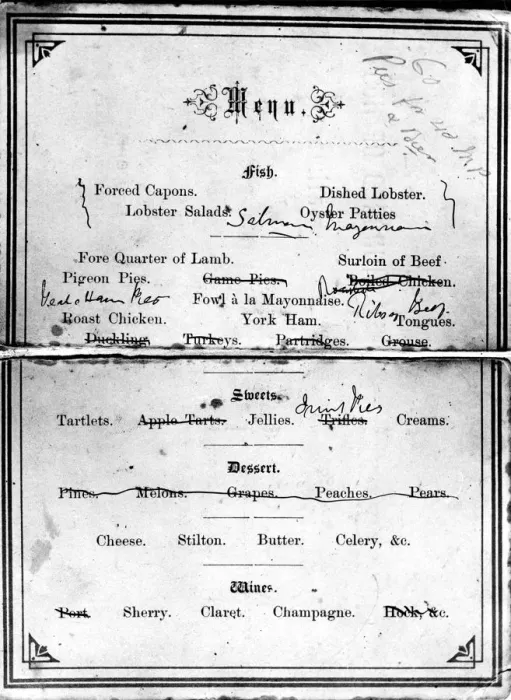 Menu.
Fish.
Forced Capons. Dished Lobster.
Lobster Salads. Oyster Patties
Salmon Mayonnaise
Fore Quarter of Lamb. Surloin of Beef.
Pigeon Pies. Game Pies. Boiled Chicken.
Veal & Ham Pies Fowl à la Mayonnaise. Roast Ribs of Beef.
Roast Chicken. York Ham. Tongues.
Duckling. Turkeys. Partridges. Grouse.
Sweets.
Fruit Pies
Tartlets. Apple Tarts. Jellies. Trifles. Creams.
Dessert.
Pines. Melons. Grapes. Peaches. Pears.
Cheese. Stilton. Butter. Celery, &c.
Wines.
Port. Sherry. Claret. Champagne. Hock, &c.